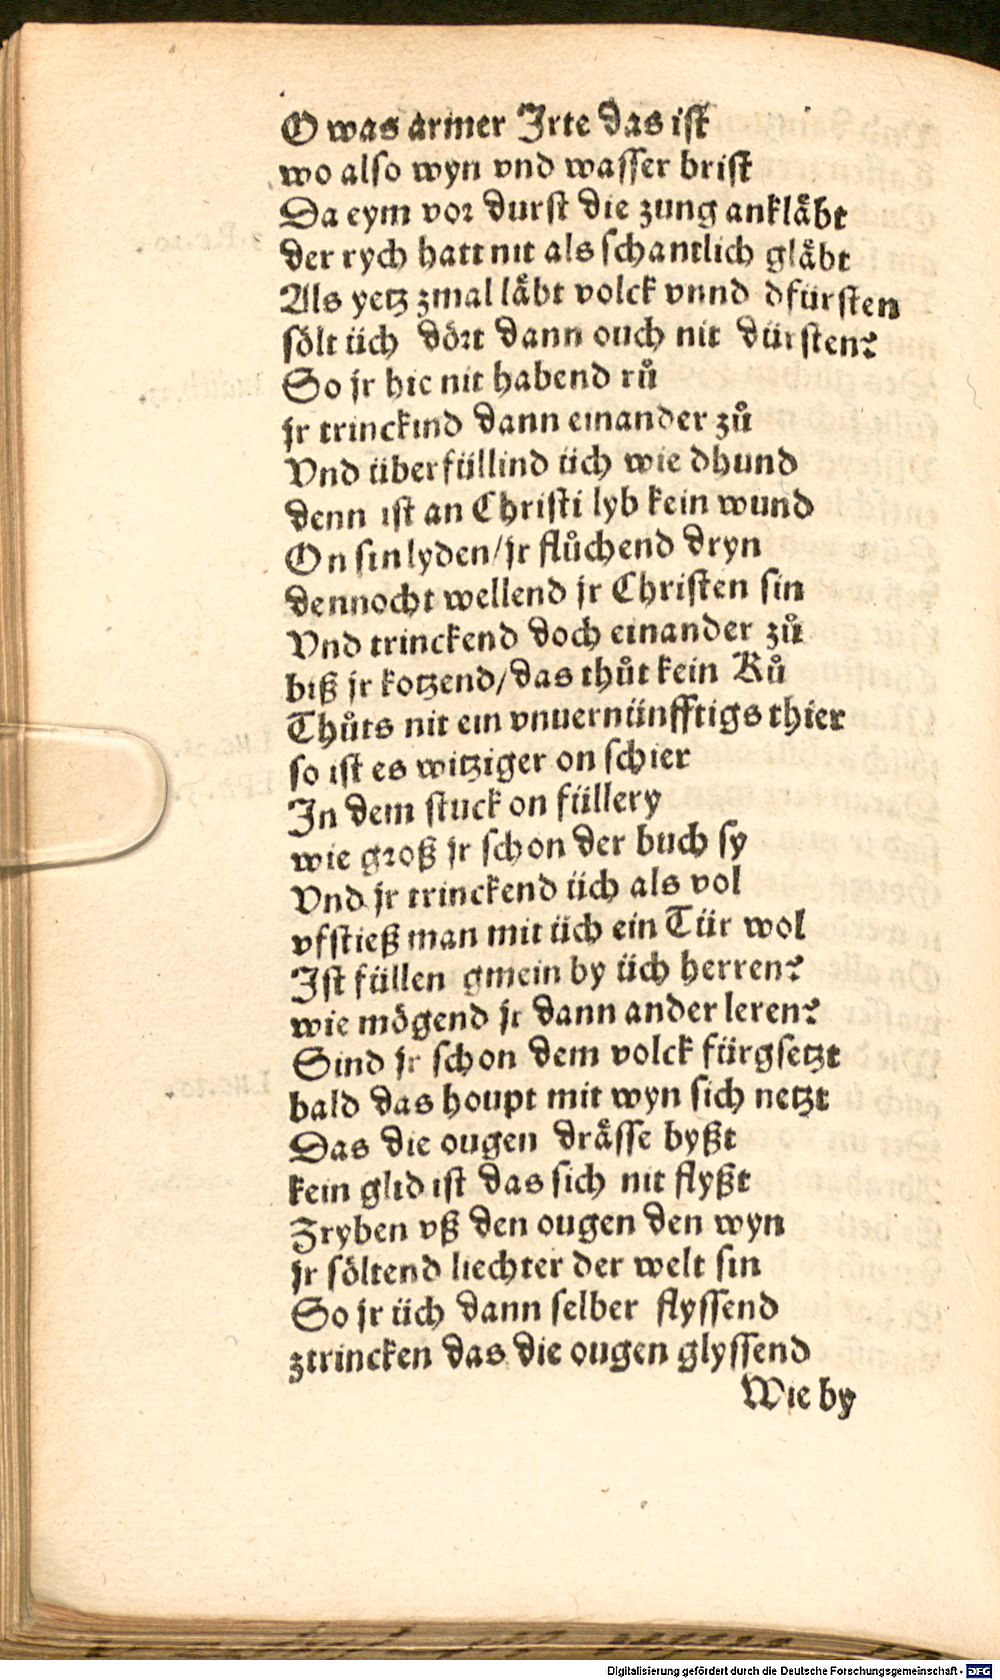 O was armer Jrte das ist
wo also wyn vnd wasser brist
Da eym vor durst die zung anklaͤbt
der rych hatt nit als schantlich glaͤbt
Als yetz zmal laͤbt volck vnnd dfürsten
soͤlt üch doͤrt dann ouch nit dürsten?
So jr hie nit habend ruͦ
jr trinckind dann einander zuͦ
Vnd überfüllind üch wie dhund
denn ist an Christi lyb kein wund
On sin lyden/jr fluͦchend dryn
dennocht wellend jr Christen sin
Vnd trinckend doch einander zuͦ
biß jr kotzend/das thuͦt kein Kuͦ
Thuͦts nit ein vnuernünfftigs thier
so ist es witziger on schier
In dem stuck on füllery
wie groß jr schon der buch sy
Vnd jr trinckend üch als vol
vfstieß man mit üch ein Tür wol
Ist füllen gmein by üch herren?
wie moͤgend jr dann ander leren?
Sind jr schon dem volck fürgsetzt
bald das houpt mit wyn sich netzt
Das die ougen draͤsse byßt
kein glid ist das sich nit flyßt
Zryben vß den ougen den wyn
jr soͤltend liechter der welt sin
So jr üch dann selber flyssend
ztrincken das die ougen glyssend
Wie by
Digitalisierung gefördert durch die Deutsche Forschungsgemeinschaft - DFG